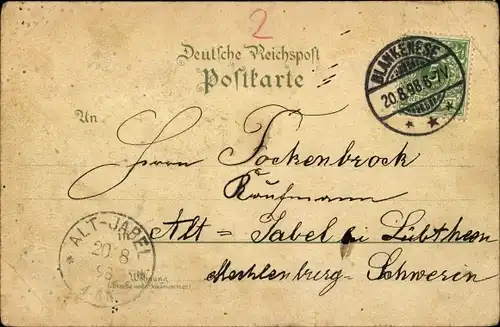 2
Deutsche Reichspost
Postkarte
BLANKENESE
20.8.98.6-7V.
An
Herrn Fockenbrock
Kaufmann
Alt-Jabel bei Lübtheen
in
Mecklenburg-Schwerin
ALT-JABEL
20 8
98
Wohnung